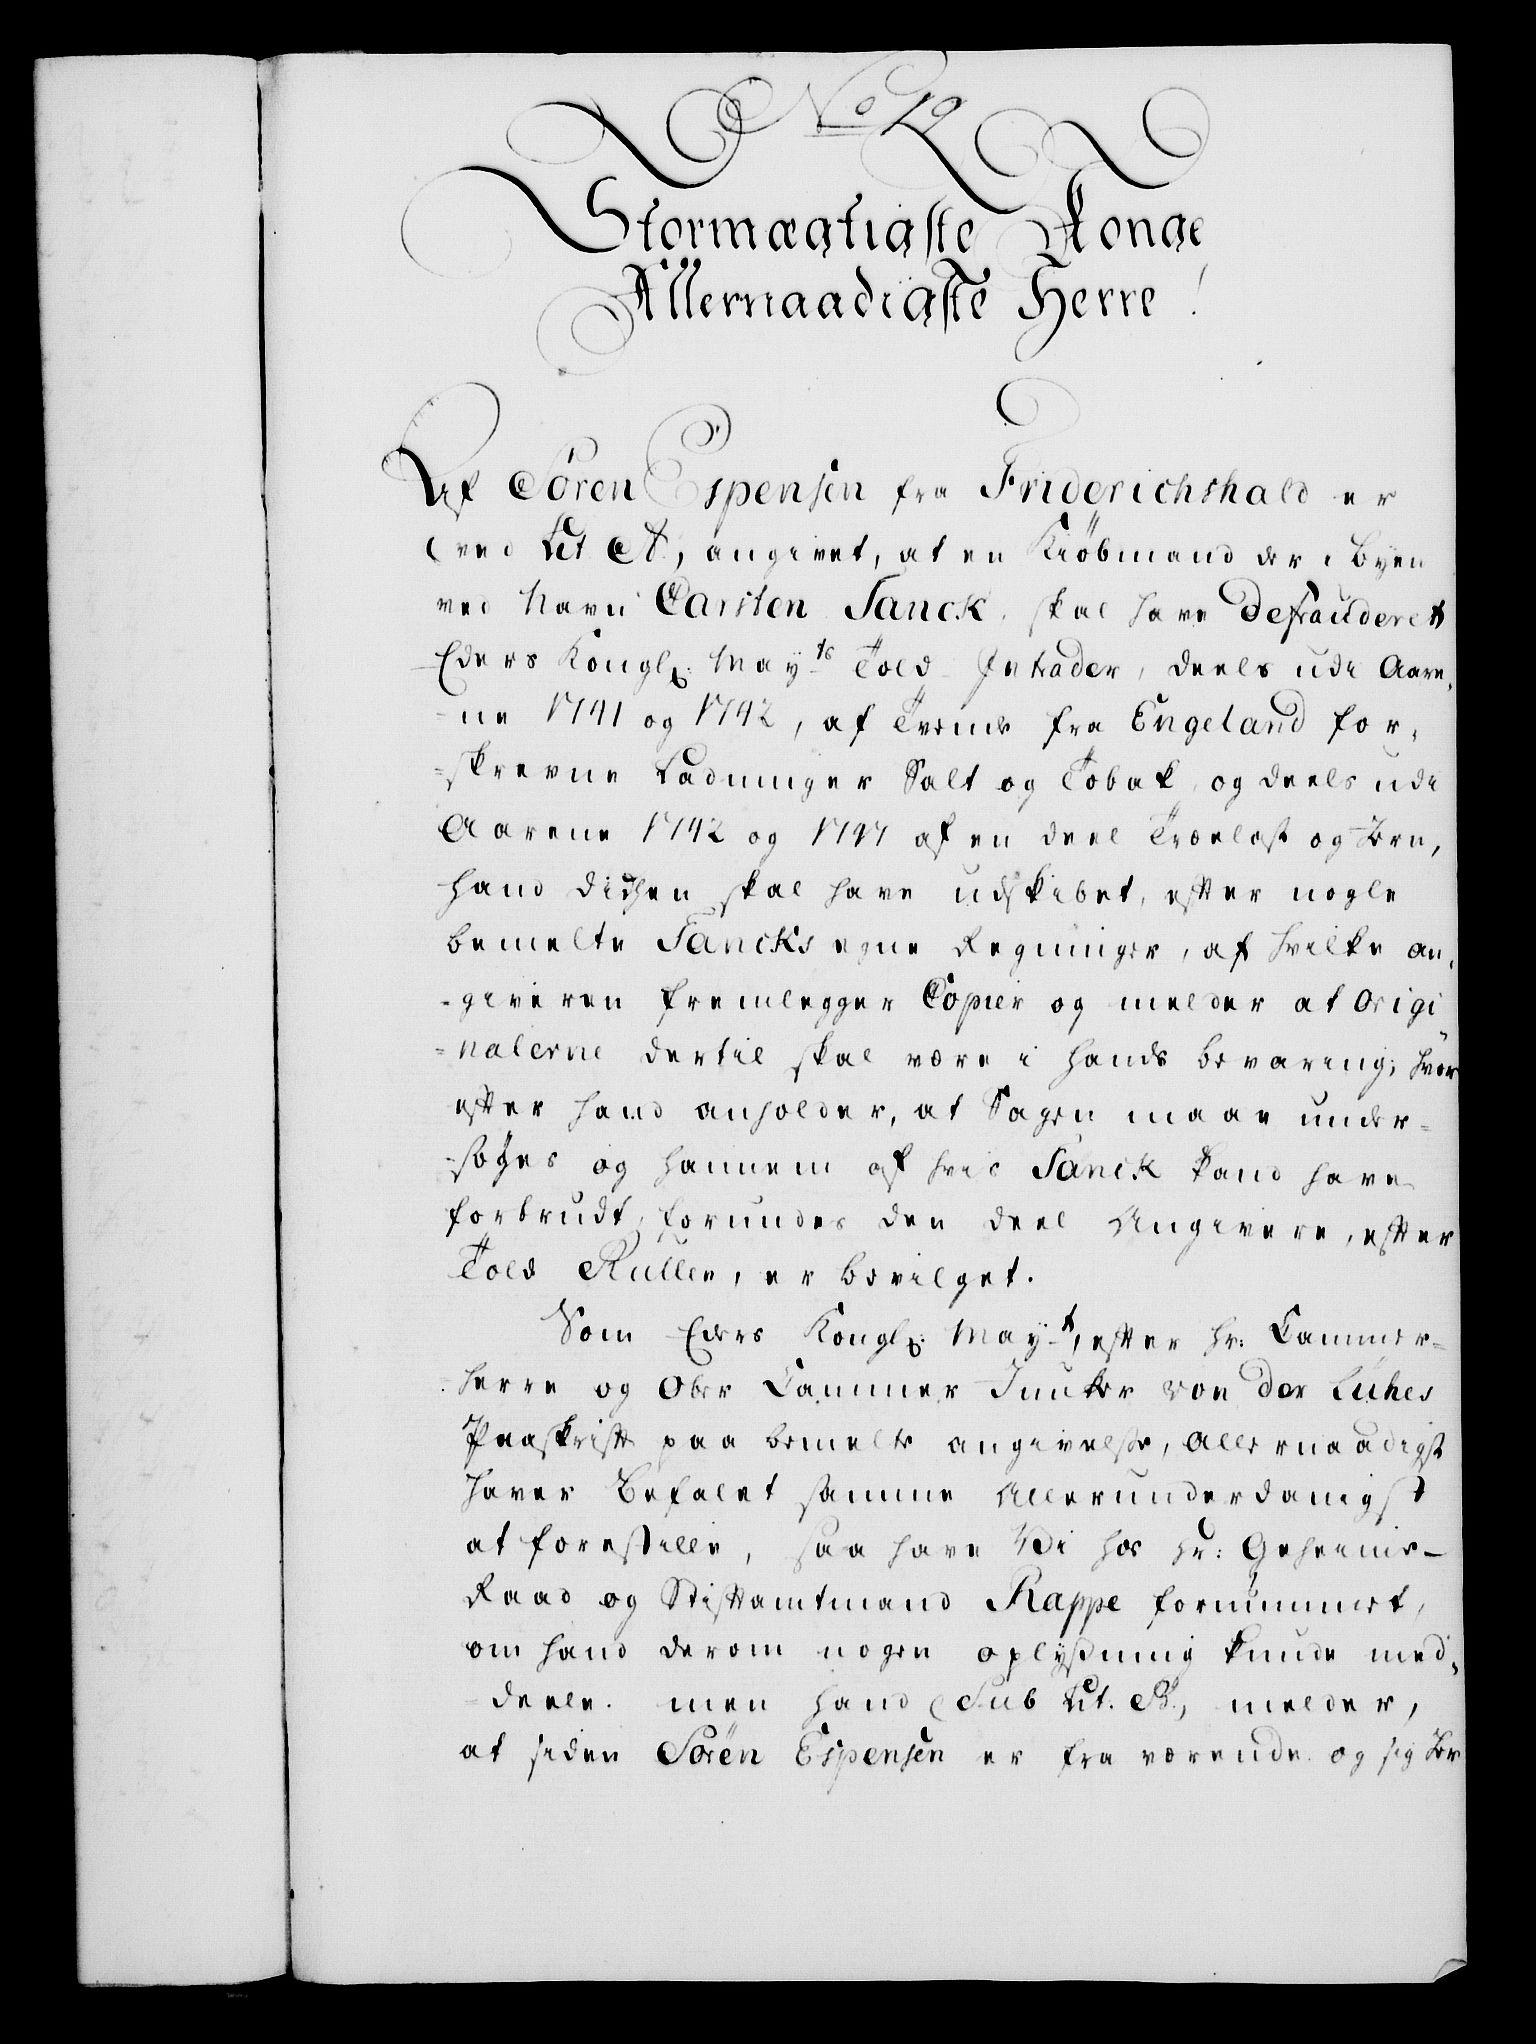 No 19
Stormægtigste Konge
Allernaadigste Herre!
Af Sören Espensen fra Friderichshald er
(ved Lit. A.) angivet, at en Kiöbmand der i Byen
ved Navn Carsten Tanck, skal have Defrauderet
Eders Kongl: Mayts Told Intrader, deels udi Aare,
-ne 1741 og 1742, af Tvende fra Engeland for,
-skrevne Ladninger Salt og Tobak, og deels udi
Aarene 1742 og 1747 af en deel Trælast og
hand skal have udskibet, efter nogle
bemelte Tancks egne Regninger, af hvilke an,
-giveren fremlegger Copier og melder at Origi
-nalerne dertil skal være i hands bevaring; hvor
efter hand anholder, at Sagen maae under-
-söges og hannem af hvis Tanck kand have
forbrudt, forundes den deel Angivere, efter
Told Rullen, er bevilget.
Som Eders Kongl: Mayt, efter Hr: Cammer-
herre og Ober Cammer Junker von der Lühes
Paaskrift paa bemelte angivelse, Allernaadigst
haver Befalet samme Allerunderdanigst
at forestille, saa have Vi hos Hr: Geheime-
Raad og Stiftamtmand Rappe fornummet,
om hand derom nogen oplysning kunde med,
-deele. men hand (Sub Lit. B.) melder,
at siden Sören Espensen er fra værende og sig